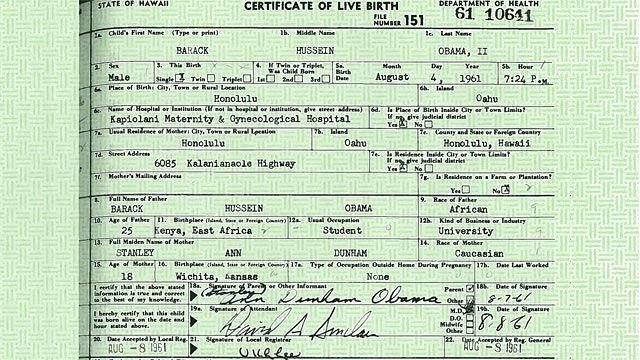 STATE OF HAWAII CERTIFICATE OF LIVE BIRTH DEPARTMENT OF HEALTH
FILE NUMBER 151 61 10641
1a. Child's First Name (Type or print) 1b. Middle Name 1c. Last Name
BARACK HUSSEIN OBAMA, II
2. Sex 3. This Birth 4. If Twin or Triplet, Was Child Born 5a. Birth Date Month Day Year 5b. Hour
Male Single X Twin Triplet 1st 2nd 3rd August 4, 1961 7:24 P.M.
6a. Place of Birth: City, Town or Rural Location 6b. Island
Honolulu Oahu
6c. Name of Hospital or Institution (If not in hospital or institution, give street address) 6d. Is Place of Birth Inside City or Town Limits? If no, give judicial district
Kapiolani Maternity & Gynecological Hospital Yes X No
7a. Usual Residence of Mother: City, Town or Rural Location 7b. Island 7c. County and State or Foreign Country
Honolulu Oahu Honolulu, Hawaii
7d. Street Address 7e. Is Residence Inside City or Town Limits? If no give judicial district
6085 Kalanianaole Highway Yes X No
7f. Mother's Mailing Address 7g. Is Residence on a Farm or Plantation?
Yes No X
8. Full Name of Father 9. Race of Father
BARACK HUSSEIN OBAMA African
10. Age of Father 11. Birthplace (Island, State or Foreign Country) 12a. Usual Occupation 12b. Kind of Business or Industry
25 Kenya, East Africa Student University
13. Full Maiden Name of Mother 14. Race of Mother
STANLEY ANN DUNHAM Caucasian
15. Age of Mother 16. Birthplace (Island, State or Foreign Country) 17a. Type of Occupation Outside Home During Pregnancy 17b. Date Last Worked
18 Wichita, Kansas None
I certify that the above stated information is true and correct to the best of my knowledge. 18a. Signature of Parent or Other Informant Parent Other 18b. Date of Signature
(Stanley) Ann Dunham Obama 8-7-61
I hereby certify that this child was born alive on the date and hour stated above. 19a. Signature of Attendant M.D. D.O. Midwife Other 19b. Date of Signature
David A Sinclair 8-8-61
20. Date Accepted by Local Reg. 21. Signature of Local Registrar 22. Date Accepted by Reg. General
AUG -8 1961 AUG -8 1961